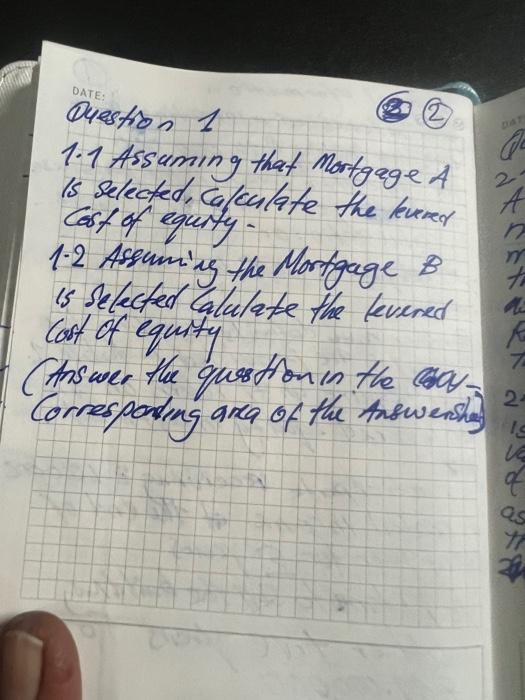 DATE:
2
Question 1
1.1 Assuming that Mortgage A
is selected, Calculate the levered
Cost of equity.
1.2 Assuming the Mortgage B
is selected Calulate the levered
Cost of equity
(Answer the question in the
Corresponding area of the Answersheet)